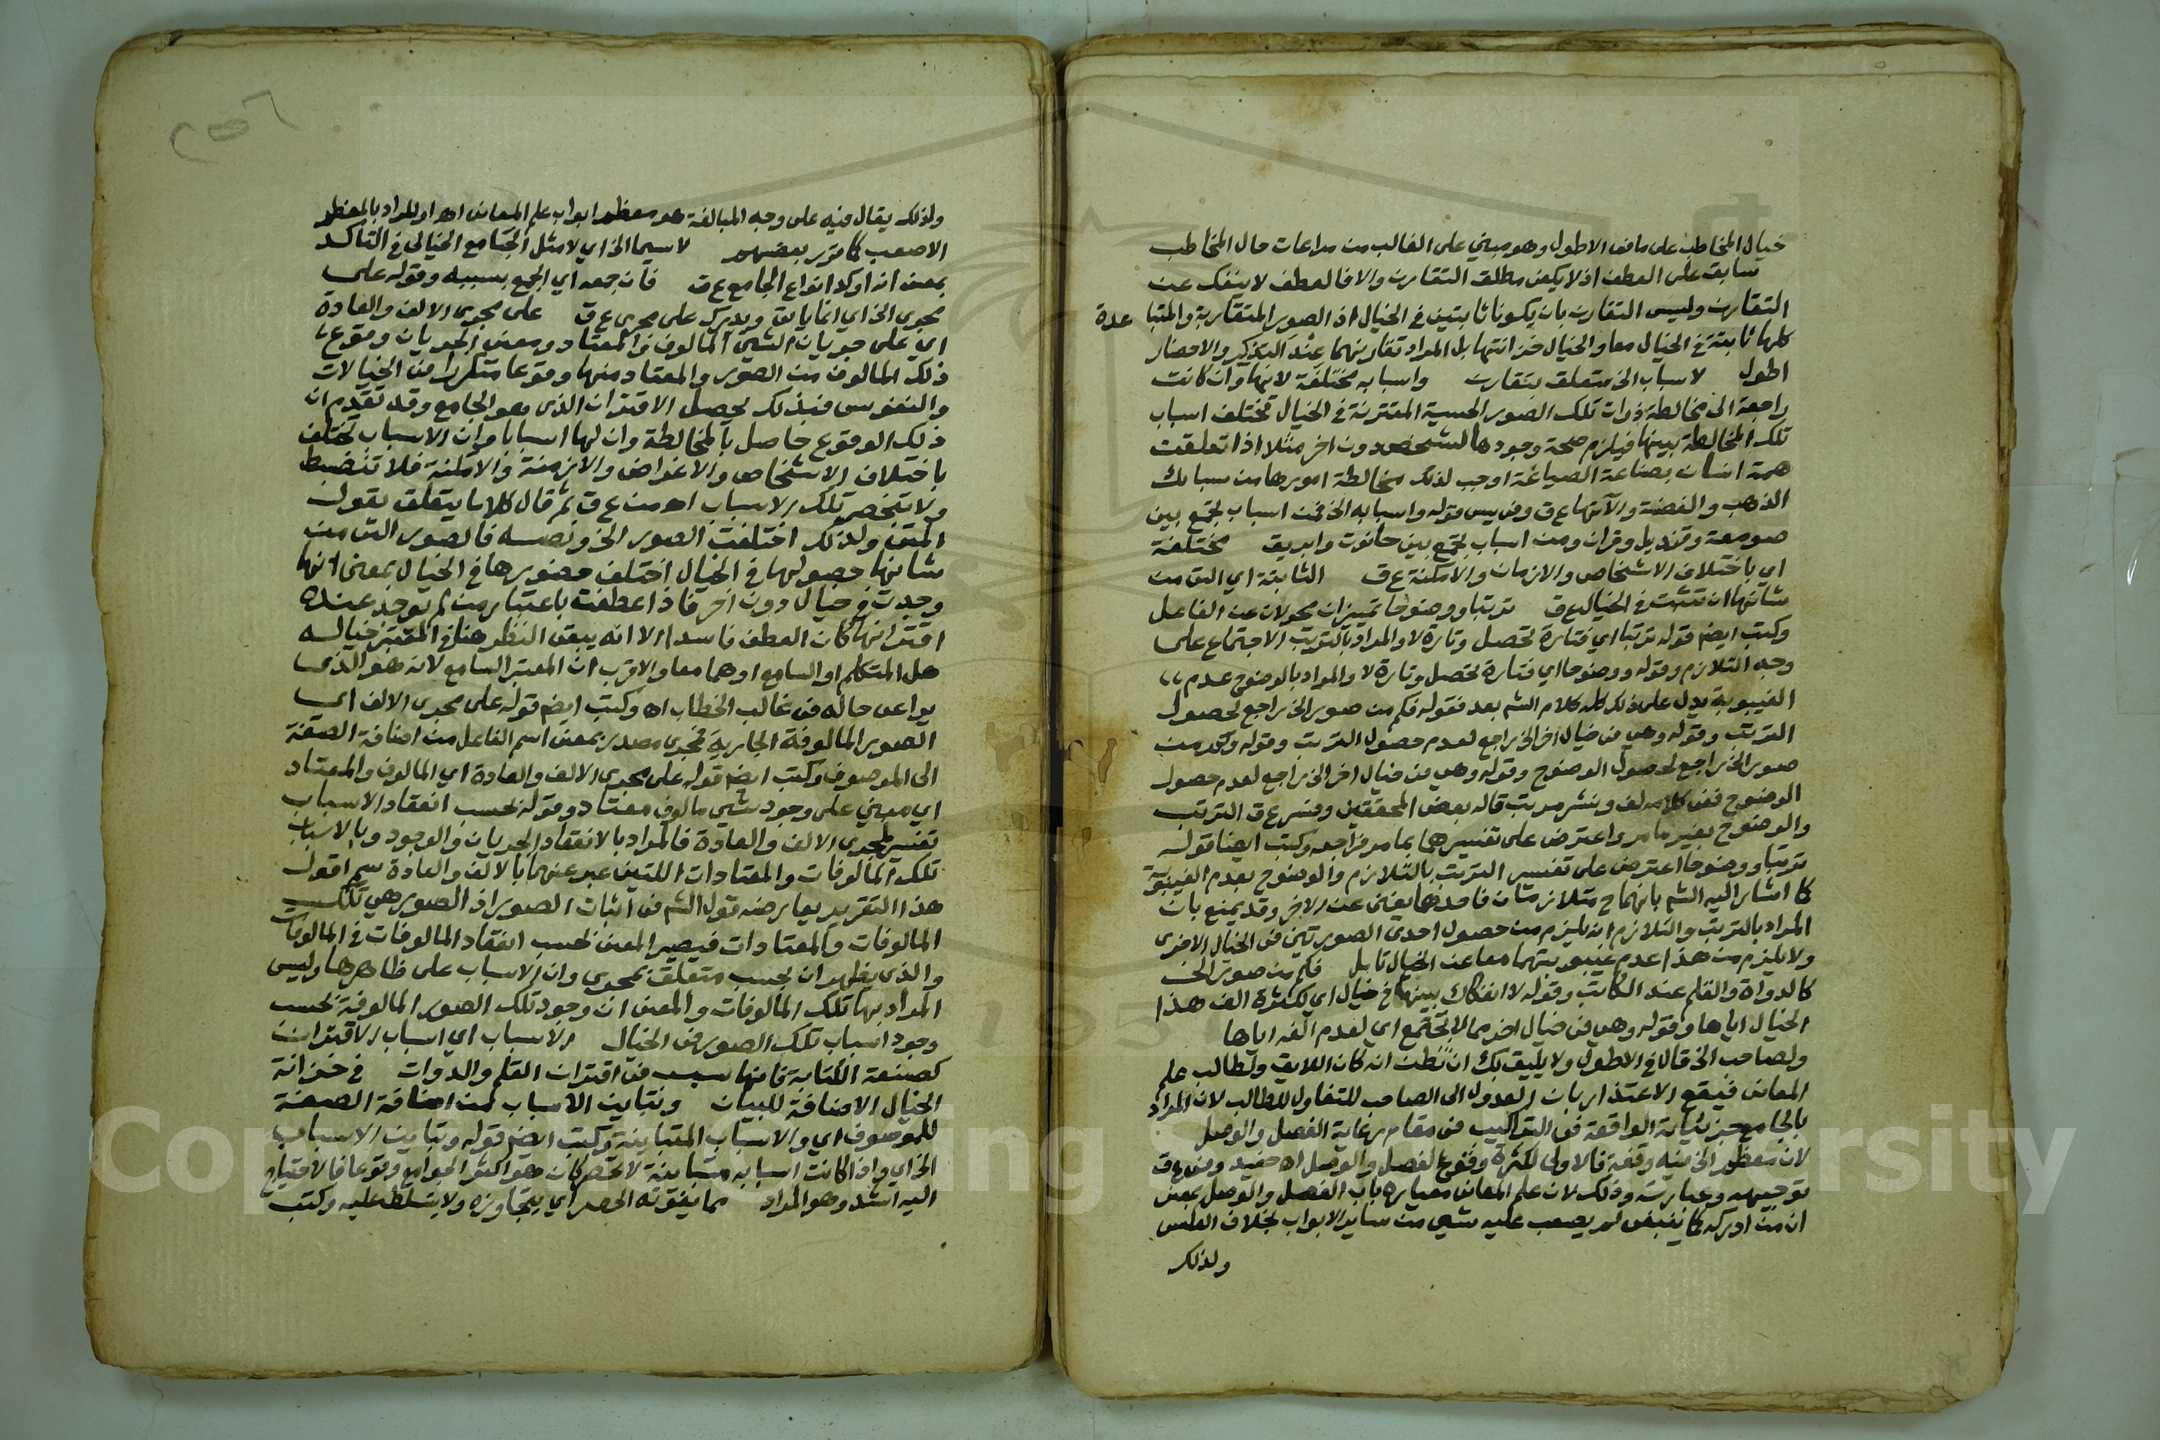 خيال المخاطب على ما في الاطول وهو مبني على الغالب من مراعات حال المخاطب
سابق على العطف اذ لا يكفي مطلق التقارن والا فالعطف لا ينفك عن
التقارن وليس التقارن بان يكونا ثابتين في الخيال اذ الصور المتقاربة والمتبا عدة
كلها ثابتة في الخيال معا والخيال خزانتها بل المراد تقارنهما عند التذكر والاحضار
اطول لاسباب الخ متعلق بتقارن واسبابه مختلفة لانها وان كانت
راجعة الى مخالطة ذوات تلك الصور الحسية المقترنة في الخيال تختلف اسباب
تلك المخالطة بينها فيلزم صحة وجودها لشخص دون اخر مثلا اذا تعلقت
همة انسان بصناعة الصياغة اوجب لذلك مخالطة امورها من سبائك
الذهب والفضة والآتها ع ق وفي يس قوله واسبابه الخ فمن اسباب تجمع بين
صومعة وقنديل وقران ومن اسباب تجمع بين حانوت وابريق مختلفة
اي باختلاف الاشخاص والازمان والامكنة ع ق الثابتة اي التي من
شانها ان تثبت في الخيال ع ق ترتبا ووضوحا تمييزان محولان عن الفاعل
وكتب ايضم قوله ترتبا اي فتارة تحصل وتارة لا والمراد بالترتب الاجتماع على
وجه التلازم وقوله ووضوحا اي فتارة تحصل وتارة لا والمراد بالوضوح عدم
الغيبوبة يدل على ذلك كله كلام الشم بعد فقوله فكم من صور الخ راجع لحصول
الترتب وقوله وهي في خيال اخر الخ راجع لعدم حصول الترتب وقوله وكم من
صور الخ راجع لحصول الوضوح وقوله وهي في خيال اخر الخ راجع لعدم حصول
الوضوح ففي كلامه لف ونشر مرتب قاله بعض المحققين وفسر ع ق الترتب
والوضوح بغير ما مر واعترض على تفسيرهما بما مر فراجعه وكتب ايضا قوله
ترتبا ووضوحا اعترض على تفسير الترتب بالتلازم والوضوح بعدم الغيبوبة
كما اشار اليه الشم بانهما ح متلازمان فاحدهما يغني عن الاخر وقد يمنع بان
المراد بالترتب والتلازم انه يلزم من حصول احدى الصورتين في الخيال الاخرى
ولا يلزم من هذا عدم غيبوبتهما معا عن الخيال تامل فكم من صور الخ
كالدواة والقلم عند الكاتب وقوله لا انفكاك بينها في خيال اي لكثرة الف هذا
الخيال اياها وقوله وهي في خيال اخر مما لا تجتمع اي لعدم الفه اياها
ولصاحب الخ قال في الاطول ولا يليق بك ان تظن انه كان اللايق ولطالب علم
المعاني فيقع الاعتذار بان العدول الى الصاحب للتفاول للطالب لان المراد
بالجامع جزئياته الواقعة في التراكيب في مقام رعاية الفصل والوصل
لان معظم الخ فيه وقفة فالاولى لكثرة وقوع الفصل والوصل اه حفيد وفي ع ق
توجيهه وعبارته وذلك لان علم المعاني معياره باب الفصل والوصل بمعنى
ان من ادركه كما ينبغي لم يصعب عليه شيء من ساير الابواب بخلاف العكس
ولذلك
ولذلك يقال فيه على وجه المبالغة هو معظم ابواب علم المعاني اه او المراد بالمعظم
الاصعب كما قرر بعضهم لاسيما الخ اي لا مثل الجامع الخيالي في التاكد
بمعنى انه اوكد انواع الجامع ع ق فان جمعه اي الجمع بسببه وقوله على
مجرى الخ اي انما ياتي ويدرك على مجرى ع ق على مجرى الالف والعادة
اي على جريان الشيء المالوف والمعتاد ومعنى الجريان وقوع
ذلك المالوف من الصور والمعتاد منها وقوعا متكررا في الخيالات
والنفوس فبذلك يحصل الاقتران الذي هو الجامع وقد تقدم ان
ذلك الوقوع حاصل بالمخالطة وان لها اسبابا وان الاسباب تختلف
باختلاف الاشخاص والاغراض والازمنة والامكنة فلا تنضبط
ولا تنحصر تلك الاسباب اه من ع ق ثم قال كلاما يتعلق بقول
المتن ولذلك اختلفت الصور الخ ونصه فالصور التي من
شانها حصولها في الخيال اختلف حضورها في الخيال بمعنى انها
وجدت في خيال دون اخر فاذا عطفت باعتبار من لم يوجد عنده
اقترانها كان العطف فاسدا الا انه يبقى النظر هنا في المعتبر خياله
هل المتكلم او السامع او هما معا والاقرب ان المعتبر السامع لانه هو الذي
يراعى حاله في غالب الخطاب اه وكتب ايضم قوله على مجرى الالف اي
الصور المالوفة الجارية فمجرى مصدر بمعنى اسم الفاعل من اضافة الصفة
الى الموصوف وكتب ايضم قوله على مجرى الالف والعادة اي المالوف والمعتاد
اي مبني على وجود شيء مالوف معتاد وقوله بحسب انعقاد الاسباب
تفسير لمجرى الالف والعادة فالمراد بالانعقاد الجريان والوجود وبالاسباب
تلك المالوفات والمعتادات اللتين عبر عنهما بالالف والعادة سم اقول
هذا التقرير يعارضه قول الشم في اثبات الصور اذ الصور هي تلك
المالوفات والمعتادات فيصير المعنى بحسب انعقاد المالوفات في المالوفات
والذي يظهر ان بحسب متعلق بمجرى وان الاسباب على ظاهرها وليس
المراد بها تلك المالوفات والمعنى ان وجود تلك الصور المالوفة بحسب
وجود اسباب تلك الصور في الخيال الاسباب اي اسباب الاقتران
كصنعة الكتابة فانها سبب في اقتران القلم والدوات في خزانة
الخيال الاضافة للبيان وتباين الاسباب من اضافة الصفة
للموصوف اي والاسباب المتباينة وكتب ايضم قوله وتباين الاسباب
الخ اي واذا كانت اسبابه متباينة لا تحصر كان هو اكثر الجوامع وقوعا فالاحتياج
اليه اشد وهو المراد مما يفوته الحصر اي يتجاوزه ولا يتسلط عليه وكتب